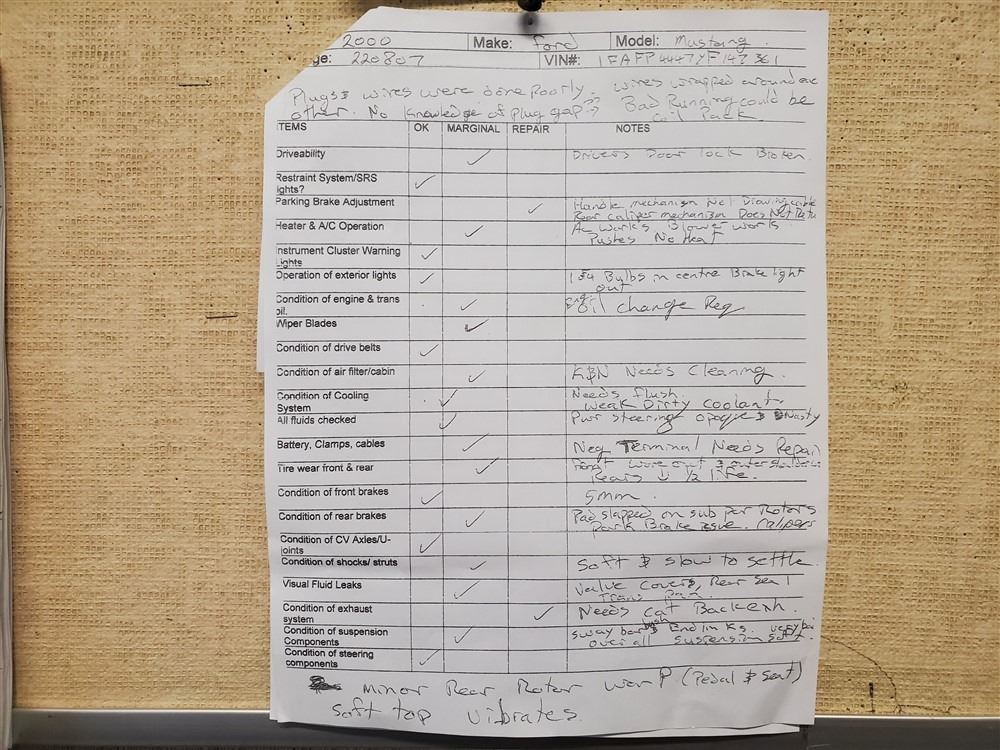 2000 Make: Ford Model: Mustang
ge: 220807 VIN#: 1FAFP4447YF147361
Plugs & wires were done poorly. wires wrapped around each
other. No knowledge of plug gap?? Bad Running could be
coil Pack
ITEMS OK MARGINAL REPAIR NOTES
Driveability ✓ Drivers Door lock Broken.
Restraint System/SRS
lights? ✓
Parking Brake Adjustment ✓ Handle mechanism Not Drawing cable
Rear caliper mechanism Does Not
Heater & A/C Operation ✓ Ac works Blower works
Pushes No Heat
Instrument Cluster Warning
Lights ✓
Operation of exterior lights ✓ 1 & 4 Bulbs in centre Brake light
out
Condition of engine & trans
oil. ✓ eng. oil change Req
Wiper Blades ✓
Condition of drive belts ✓
Condition of air filter/cabin ✓ K&N Needs Cleaning.
Condition of Cooling
System ✓ Needs flush.
weak Dirty coolant
All fluids checked ✓ Pwr steering opaque & Nasty
Battery, Clamps, cables ✓ Neg Terminal Needs Repair
Tire wear front & rear ✓ front wore out & outer
Rears 1/2 life.
Condition of front brakes ✓ 5mm.
Condition of rear brakes ✓ Pad slapped on sub par Rotors
Park Brake issue. calipers
Condition of CV Axles/U-
joints ✓
Condition of shocks/ struts ✓ Soft & slow to settle
Visual Fluid Leaks ✓ Valve Covers, Rear Seal
Trans Pan.
Condition of exhaust
system ✓ Needs cat Back exh.
Condition of suspension
Components ✓ sway bar bush & End links. very bad
over all suspension soft.
Condition of steering
components ✓
Minor Rear Rotor warp (Pedal & seat)
Soft top vibrates.